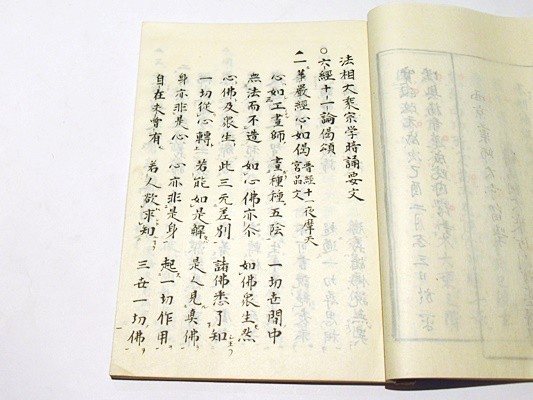 法相大乗宗学時誦要文
○六經十一論偈頌
一華嚴經心如偈 晋經十一夜摩天宮品文
心如工畫師 畫種種五陰 一切世間中
無法而不造 如心佛亦尒 如佛衆生然
心佛及衆生 此三无差別 諸佛悉了知
一切從心轉 若能如是解 是人見真佛
身亦非是心 心亦非是身 起一切作用
自在未曾有 若人欲求知 三世一切佛